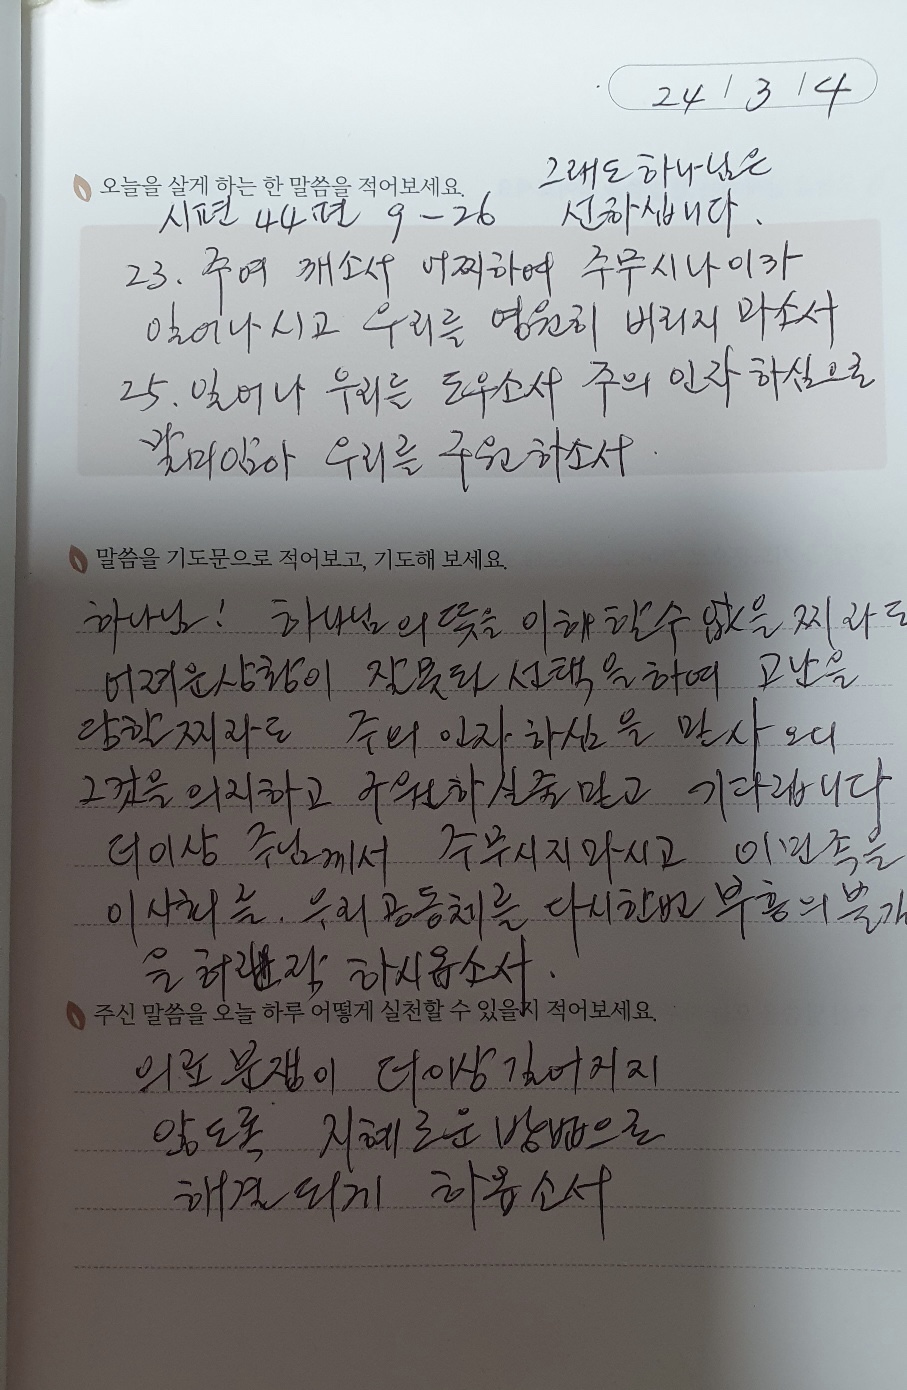 24 / 3 / 4
오늘을 살게 하는 한 말씀을 적어보세요.
그래도 하나님은
선하십니다.
시편 44편 9-26
23. 주여 깨소서 어찌하여 주무시나이까
일어나시고 우리를 영원히 버리지 마소서
25. 일어나 우리를 도우소서 주의 인자하심으로
말미암아 우리를 구원하소서.
말씀을 기도문으로 적어보고, 기도해 보세요.
하나님! 하나님의 뜻을 이해할수 없을찌라도
어려운상황이 잘못된 선택을하여 고난을
당할찌라도 주의 인자하심을
그것을 의지하고 구원하실줄믿고 기다립니다
더이상 주님께서 주무시지마시고 이민족을
이사회를. 우리공동체를 다시한번 부흥의
을 하시옵소서.
주신 말씀을 오늘 하루 어떻게 실천할 수 있을지 적어보세요.
의료문제이 더이상길어지지
않도록 지혜로운 방법으로
해결되게 하옵소서